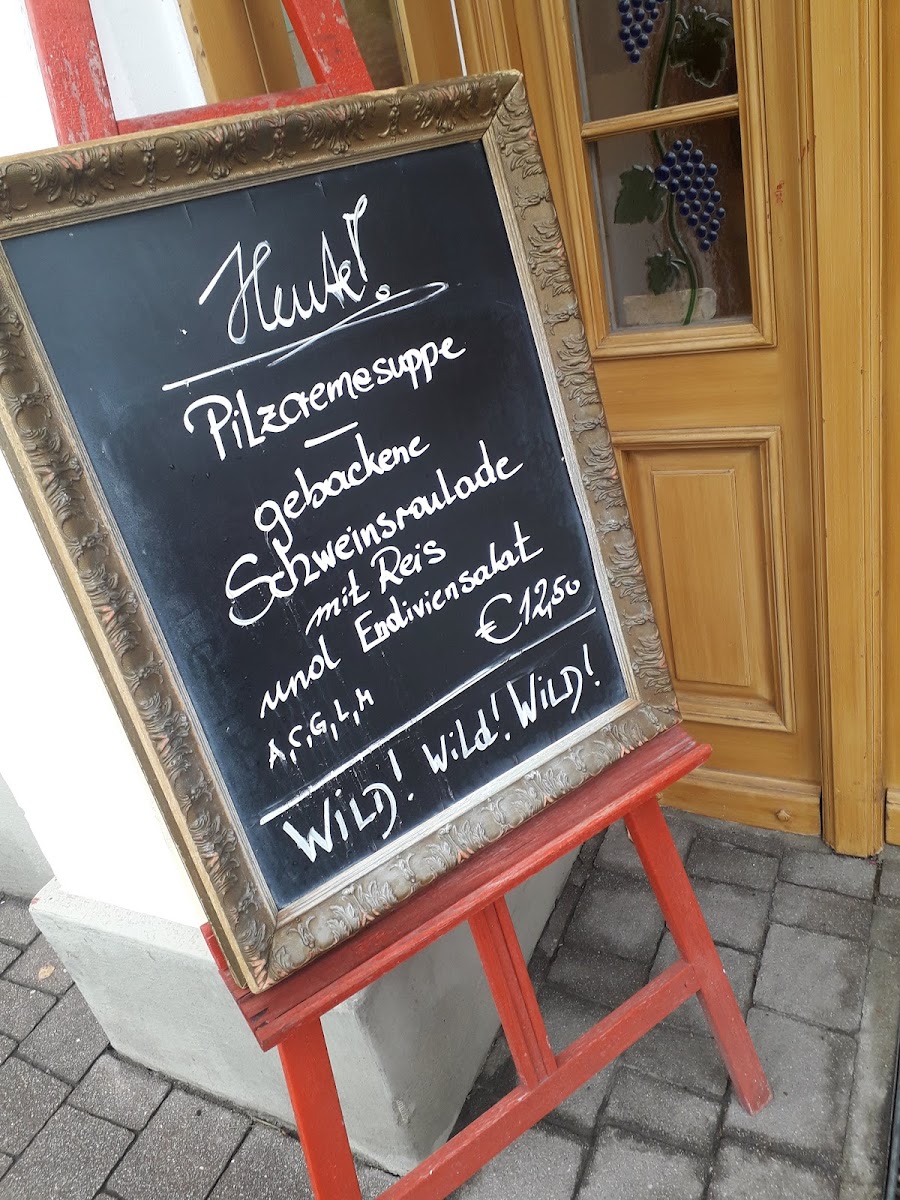 Heute!
Pilzcremesuppe
—
gebackene
Schweinsroulade
mit Reis
und Endiviensalat
€ 12,50
A, C, G, L, M
WILD! Wild! WILD!